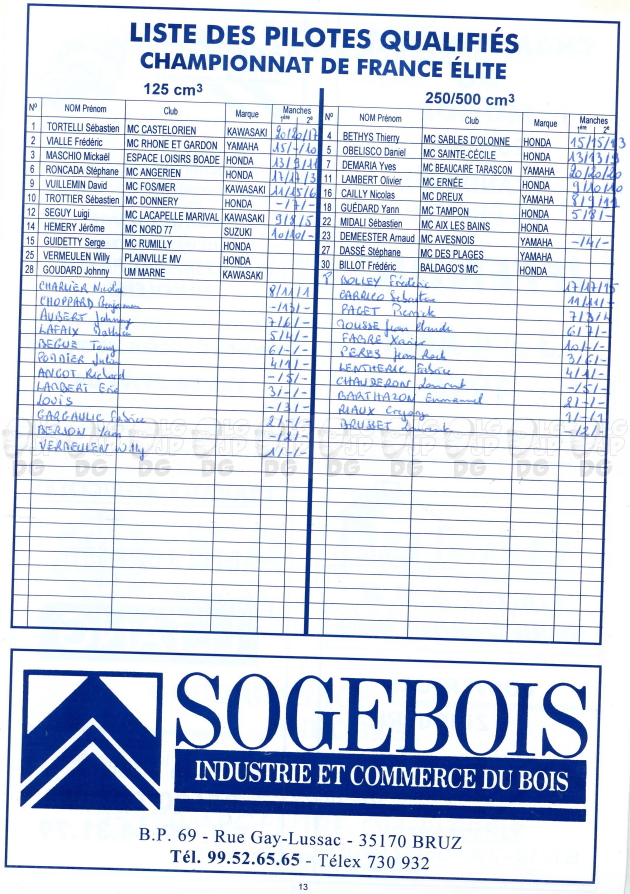 LISTE DES PILOTES QUALIFIÉS
CHAMPIONNAT DE FRANCE ÉLITE
125 cm3
N° NOM Prénom Club Marque Manches 1ère 2e
1 TORTELLI Sébastien MC CASTELORIEN KAWASAKI 20/20/17
2 VIALLE Frédéric MC RHONE ET GARDON YAMAHA 15/-/20
3 MASCHIO Mickaël ESPACE LOISIRS BOADE HONDA 13/9/11
6 RONCADA Stéphane MC ANGERIEN HONDA 17/17/3
9 VUILLEMIN David MC FOS/MER KAWASAKI 11/15/6
10 TROTTIER Sébastien MC DONNERY HONDA -/7/-
12 SEGUY Luigi MC LACAPELLE MARIVAL KAWASAKI 9/8/5
14 HEMERY Jérôme MC NORD 77 SUZUKI 10/10/-
15 GUIDETTY Serge MC RUMILLY HONDA
25 VERMEULEN Willy PLAINVILLE MV HONDA
28 GOUDARD Johnny UM MARNE KAWASAKI
CHARLIER Nicolas 8/11/1
CHOPPARD Benjamin -/13/-
AUBERT Johnny 7/6/-
LAFAIX Mathieu 5/4/-
BEGUE Tony 6/-/-
Julien 4/1/-
ANGOT Richard -/5/-
LAMBERT Eric 3/-/-
LOUIS -/3/-
GARGAULIC Fabrice 2/-/-
BERSON Yann -/2/-
VERMEULEN Willy 1/-/-
250/500 cm3
N° NOM Prénom Club Marque Manches 1ère 2e
4 BETHYS Thierry MC SABLES D'OLONNE HONDA 15/15/13
5 OBELISCO Daniel MC SAINTE-CÉCILE HONDA 13/13/9
7 DEMARIA Yves MC BEAUCAIRE TARASCON YAMAHA 20/20/20
11 LAMBERT Olivier MC ERNÉE HONDA 9/10/10
16 CAILLY Nicolas MC DREUX YAMAHA 8/9/11
18 GUÉDARD Yann MC TAMPON HONDA 5/8/-
22 MIDALI Sébastien MC AIX LES BAINS HONDA
23 DEMEESTER Arnaud MC AVESNOIS YAMAHA -/4/-
27 DASSÉ Stéphane MC DES PLAGES YAMAHA
30 BILLOT Frédéric BALDAGO'S MC HONDA
8 BOLLEY Frédéric 17/17/15
CARRICO Sébastien 11/11/-
PAGET Pierrick 7/3/4
MOUSSE Jean Claude 6/7/-
FABRE Xavier 10/-/-
PERES Jean Rock 3/6/-
LENTHERIC Fabrice 4/1/-
CHAUDERON Laurent -/5/-
BARTHAZON Emmanuel 2/-/-
RIAUX Gregory 1/-/1
BRUSSET Laurent -/2/-
SOGEBOIS
INDUSTRIE ET COMMERCE DU BOIS
B.P. 69 - Rue Gay-Lussac - 35170 BRUZ
Tél. 99.52.65.65 - Télex 730 932
13